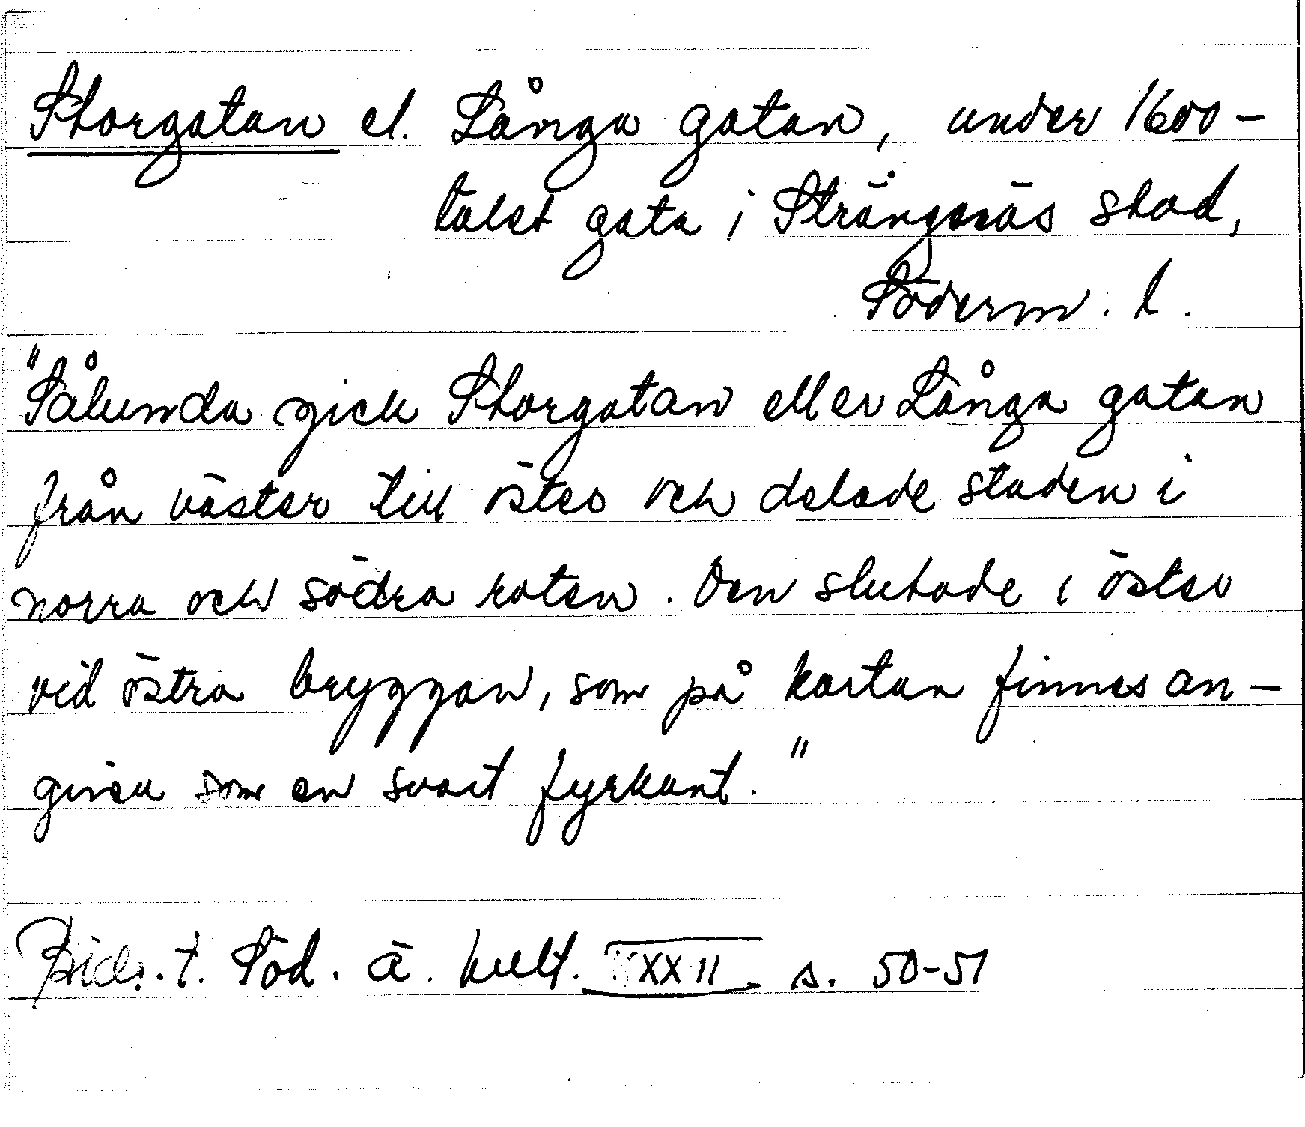 Storgatan el. Långa gatan, under 1600-
talet gata i Strängnäs stad,
Söderm. l.
"Sålunda gick Storgatan eller Långa gatan
från väster till öster och delade staden i
norra och södra roten. Den slutade i öster
vid östra bryggan, som på kartan finnes an-
given som en svart fyrkant."
Bidr. t. Söd. ä. kult. XXII s. 50-51